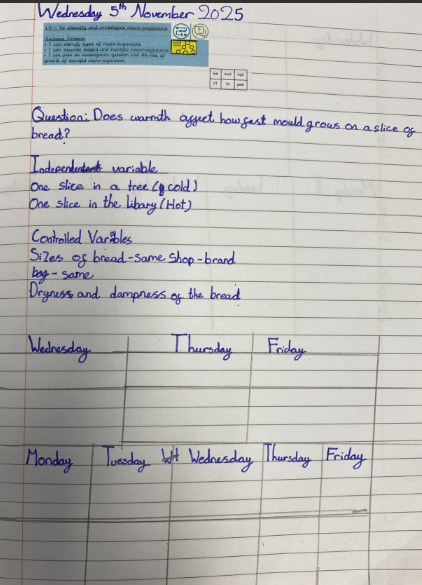 Wednesday 5th November 2025
LO: To identify and investigate micro-organisms
Success Criteria
• I can identify types of micro-organisms
• I can describe helpful and harmful micro-organisms
Question: Does warmth affect how fast mould grows on a slice of
bread?
Independent variable
One slice in a tree (cold)
One slice in the libary (Hot)
Controlled Varibles
Sizes of bread-same shop-brand
bag - same
Dryness and dampness of the bread
Wednesday Thursday Friday
Monday Tuesday Wednesday Thursday Friday